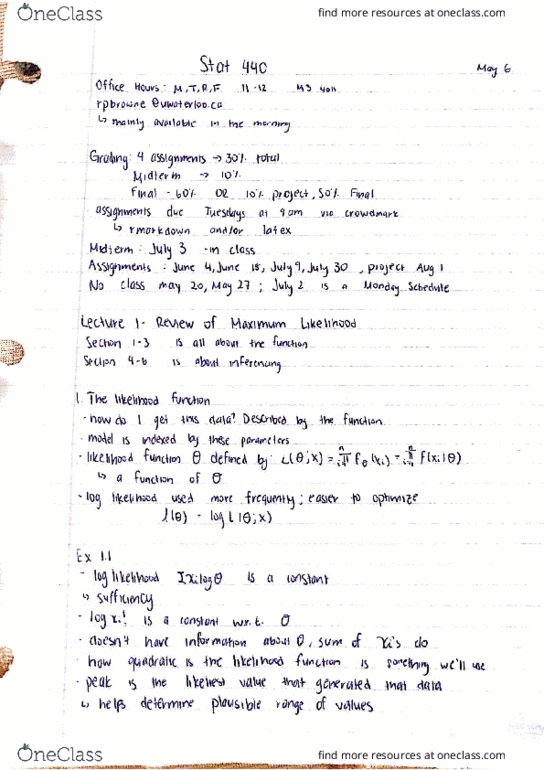 OneClass
find more resources at oneclass.com
Stat 440
May 6
Office Hours: M,T,R,F 11-12 M3
rpbrowne @uwaterloo.ca
↳ mainly available in the morning
Grading: 4 assignments → 30% total
Midterm → 10%
Final - 60% OR 10% project, 50% Final
assignments due Tuesdays at 9am via crowdmark
↳ rmarkdown and/or latex
Midterm: July 3 - in class
Assignments: June 4, June 18, July 9, July 30, project Aug 1
No class may 20, May 27; July 2 is a Monday Schedule
Lecture 1- Review of Maximum Likelihood
Section 1-3 is all about the function
Section 4-6 is about inferencing
1. The likelihood function
· how do I get this data? Described by the function
· model is indexed by these parameters
· likelihood function θ defined by: L(θ;x) = ∏ᵢ₌₁ⁿ f_θ(xᵢ) = ∏ᵢ₌₁ⁿ f(xᵢ|θ)
↳ a function of θ
· log likelihood used more frequently; easier to optimize
l(θ) - log L(θ;x)
Ex 1.1
- log likelihood Σxᵢlogθ is a constant
↳ sufficiency
· log xᵢ! is a constant w.r.t. θ
· doesn't have information about θ, sum of xᵢ's do
· how quadratic is the likelihood function is something we'll use
· peak is the likeliest value that generated that data
↳ helps determine plausible range of values
OneClass
find more resources at oneclass.com